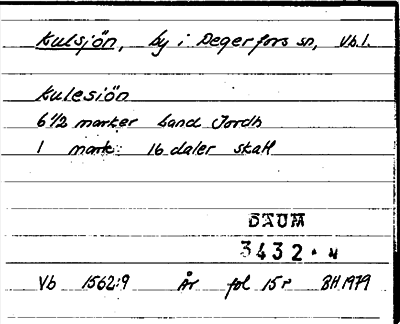 Kulsjön, by i Degerfors sn, Vb.l.
Kulesiön
6 1/2 marker Land Jordh
1 mark: 16 daler skatt
DATUM
3432 · 4
Vb 1562:9 År fol 15r BH 1979